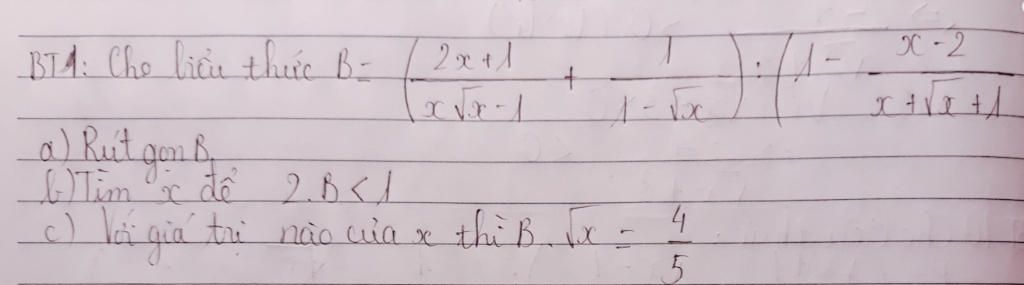 BT1: Cho biểu thức B = (\frac{2x+1}{x\sqrt{x}-1} + \frac{1}{1-\sqrt{x}}) : (1 - \frac{x-2}{x+\sqrt{x}+1}
a) Rút gọn B
b) Tìm x để 2.B < 1
c) Với giá trị nào của x thì B.\sqrt{x} = \frac{4}{5}